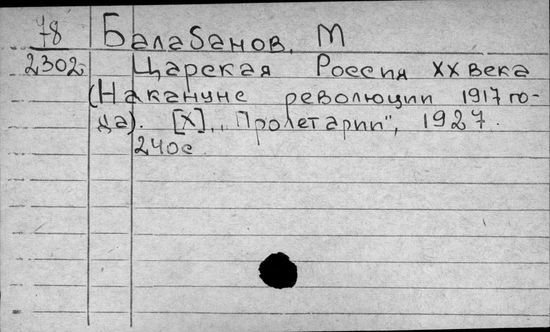 78 Балабанов, М
2302 Царская Россия XX века
(Накануне революции 1917 го-
да). [Х], „Пролетарии", 1927.
240с